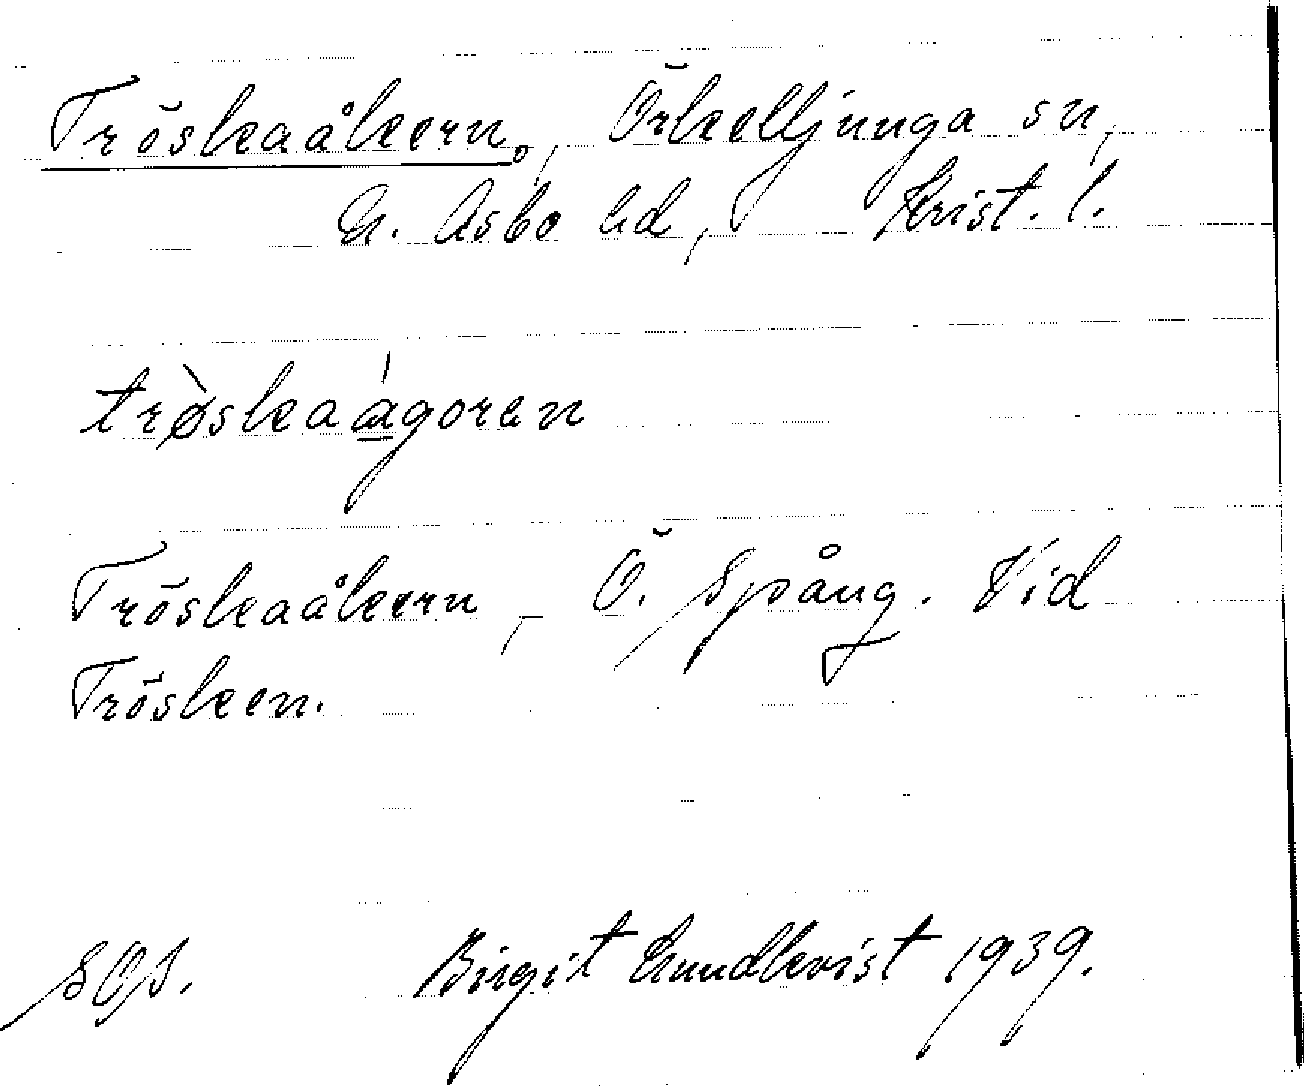 Tröskaåkern, Örkelljunga sn,
N. Asbo hd, Krist. l.
trø̀skaá̱goren
Tröskaåkern, Ö. Spång. Vid
Trösken.
Birgit Lundkvist 1939.